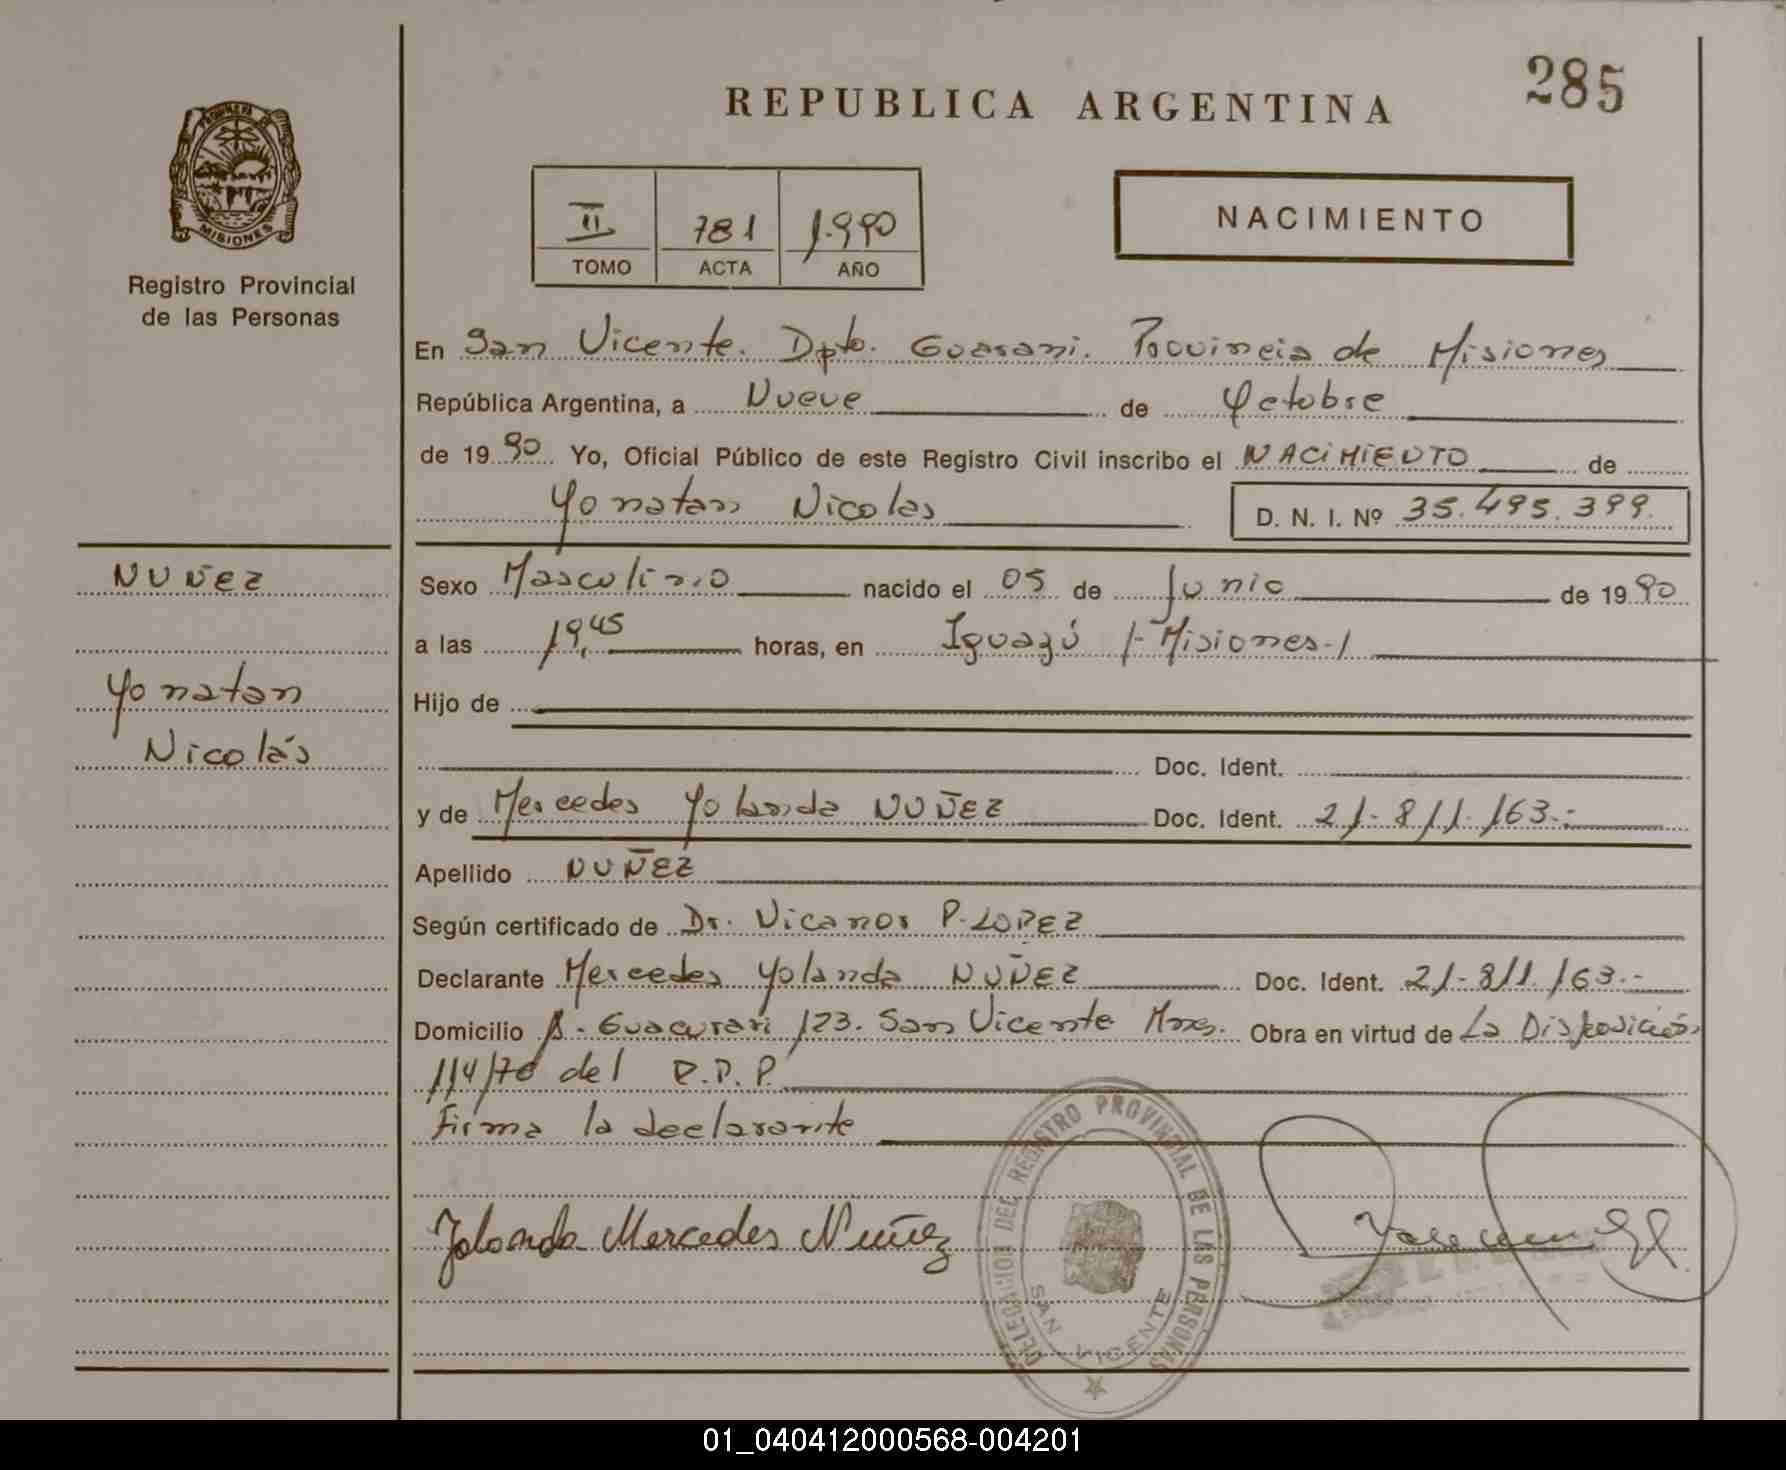 285
REPUBLICA ARGENTINA
PROVINCIA DE
MISIONES
Registro Provincial
de las Personas
II 781 1.990
TOMO ACTA AÑO
NACIMIENTO
En San Vicente. Dpto. Guarani. Provincia de Misiones
República Argentina, a Nueve de Octubre
de 1990 Yo, Oficial Público de este Registro Civil inscribo el NACIMIENTO de
Yonatan Nicolas D. N. I. Nº 35.495.399.
NUÑEZ
Yonatan
Nicolás
Sexo Masculino nacido el 05 de Junio de 1990
a las 19,45 horas, en Iguazú /-Misiones-/
Hijo de
Doc. Ident.
y de Mercedes Yolanda NUÑEZ Doc. Ident. 21.811.163.-
Apellido NUÑEZ
Según certificado de Dr. Nicanor P. LOPEZ
Declarante Mercedes Yolanda NUÑEZ Doc. Ident. 21.811.163.-
Domicilio A. Guacurari 123. San Vicente Mnes. Obra en virtud de La Disposición
114/70 del R.P.P.
Firma la declarante
Yolanda Mercedes Nuñez
DELEGACION DEL REGISTRO PROVINCIAL DE LAS PERSONAS
SAN VICENTE
01_040412000568-004201